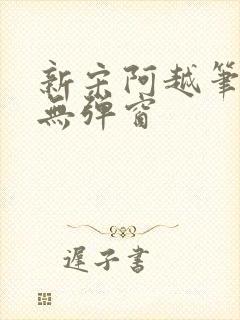 新宋阿越筆
無彈窗
遲子書